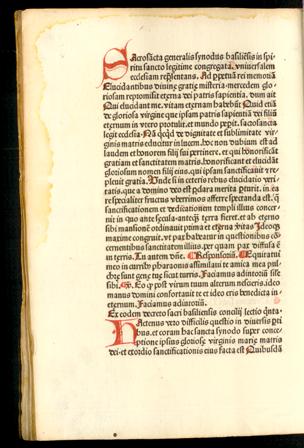 Sacrosācta generalis synodus basiliēsis in spi
ritu sancto legitime congregata. vniuersalem
ecclesiam rep̄sentans. Ad ppetuā rei memoriā
Elucidantibus diuine gratie misteria mercedem glo
riosam repromisit eterna dei patris sapientia. dum ait
Qui elucidant me. vitam eternam habebūt Quid etiā
de gloriosa virgine que ipsam patris sapientiā dei filiū
eternum in vtero portauit. et mundo peperit. sacrosancta
legit ecclesia. Nā qcqd de dignitate et sublimitate vir
ginis matris educitur in lucem. hoc non dubium est ad
laudem et honorem filij sui pertinere. et qui honorificāt
gratiam et sanctitatem matris. honorificant et elucidāt
gloriosum nomen filij eius. qui ipsam sanctificauit re
pleuit gratia. Unde si in ceteris rebus elucidatio veri
tatis. que a domino deo est p̄clara merita pturit. in ea
re specialiter fructus vberrimos afferre speranda est. q̄
sanctificationem et dedicationem templi illius concer
nit in quo ante secula anteq̄ terra fieret. et ab eterno
sibi mansionē ordinauit prima et eterna v̄itas Ideoq̄z
maxime congruit. vt pax habeatur in questionibus cō
cernentibus sanctitatem illius. per quam pax diffusa ē
in terris. Tu autem dn̄e. Responsoriū. Equitatui
meo in curribus pharaonis assimilaui te amica mea pul
chre sunt gene tue sicut turturis. Faciamus adiutoriū sile
sibi. Eo q̄ post virum tuum alterum nescieris. ideo
manus domini confortauit te et ideo eris benedicta in
eternum. Faciamus adiutoriū.
Ex eodem decreto sacri basiliensis concilij lectio q̄nta.
Hactenus vero difficilis questio in diuersis ptibus
et coram hac sancta synodo super conce
ptione ipsius gloriose virginis marie matris
dei. et exordio sanctificationis eius facta est Quibusdā